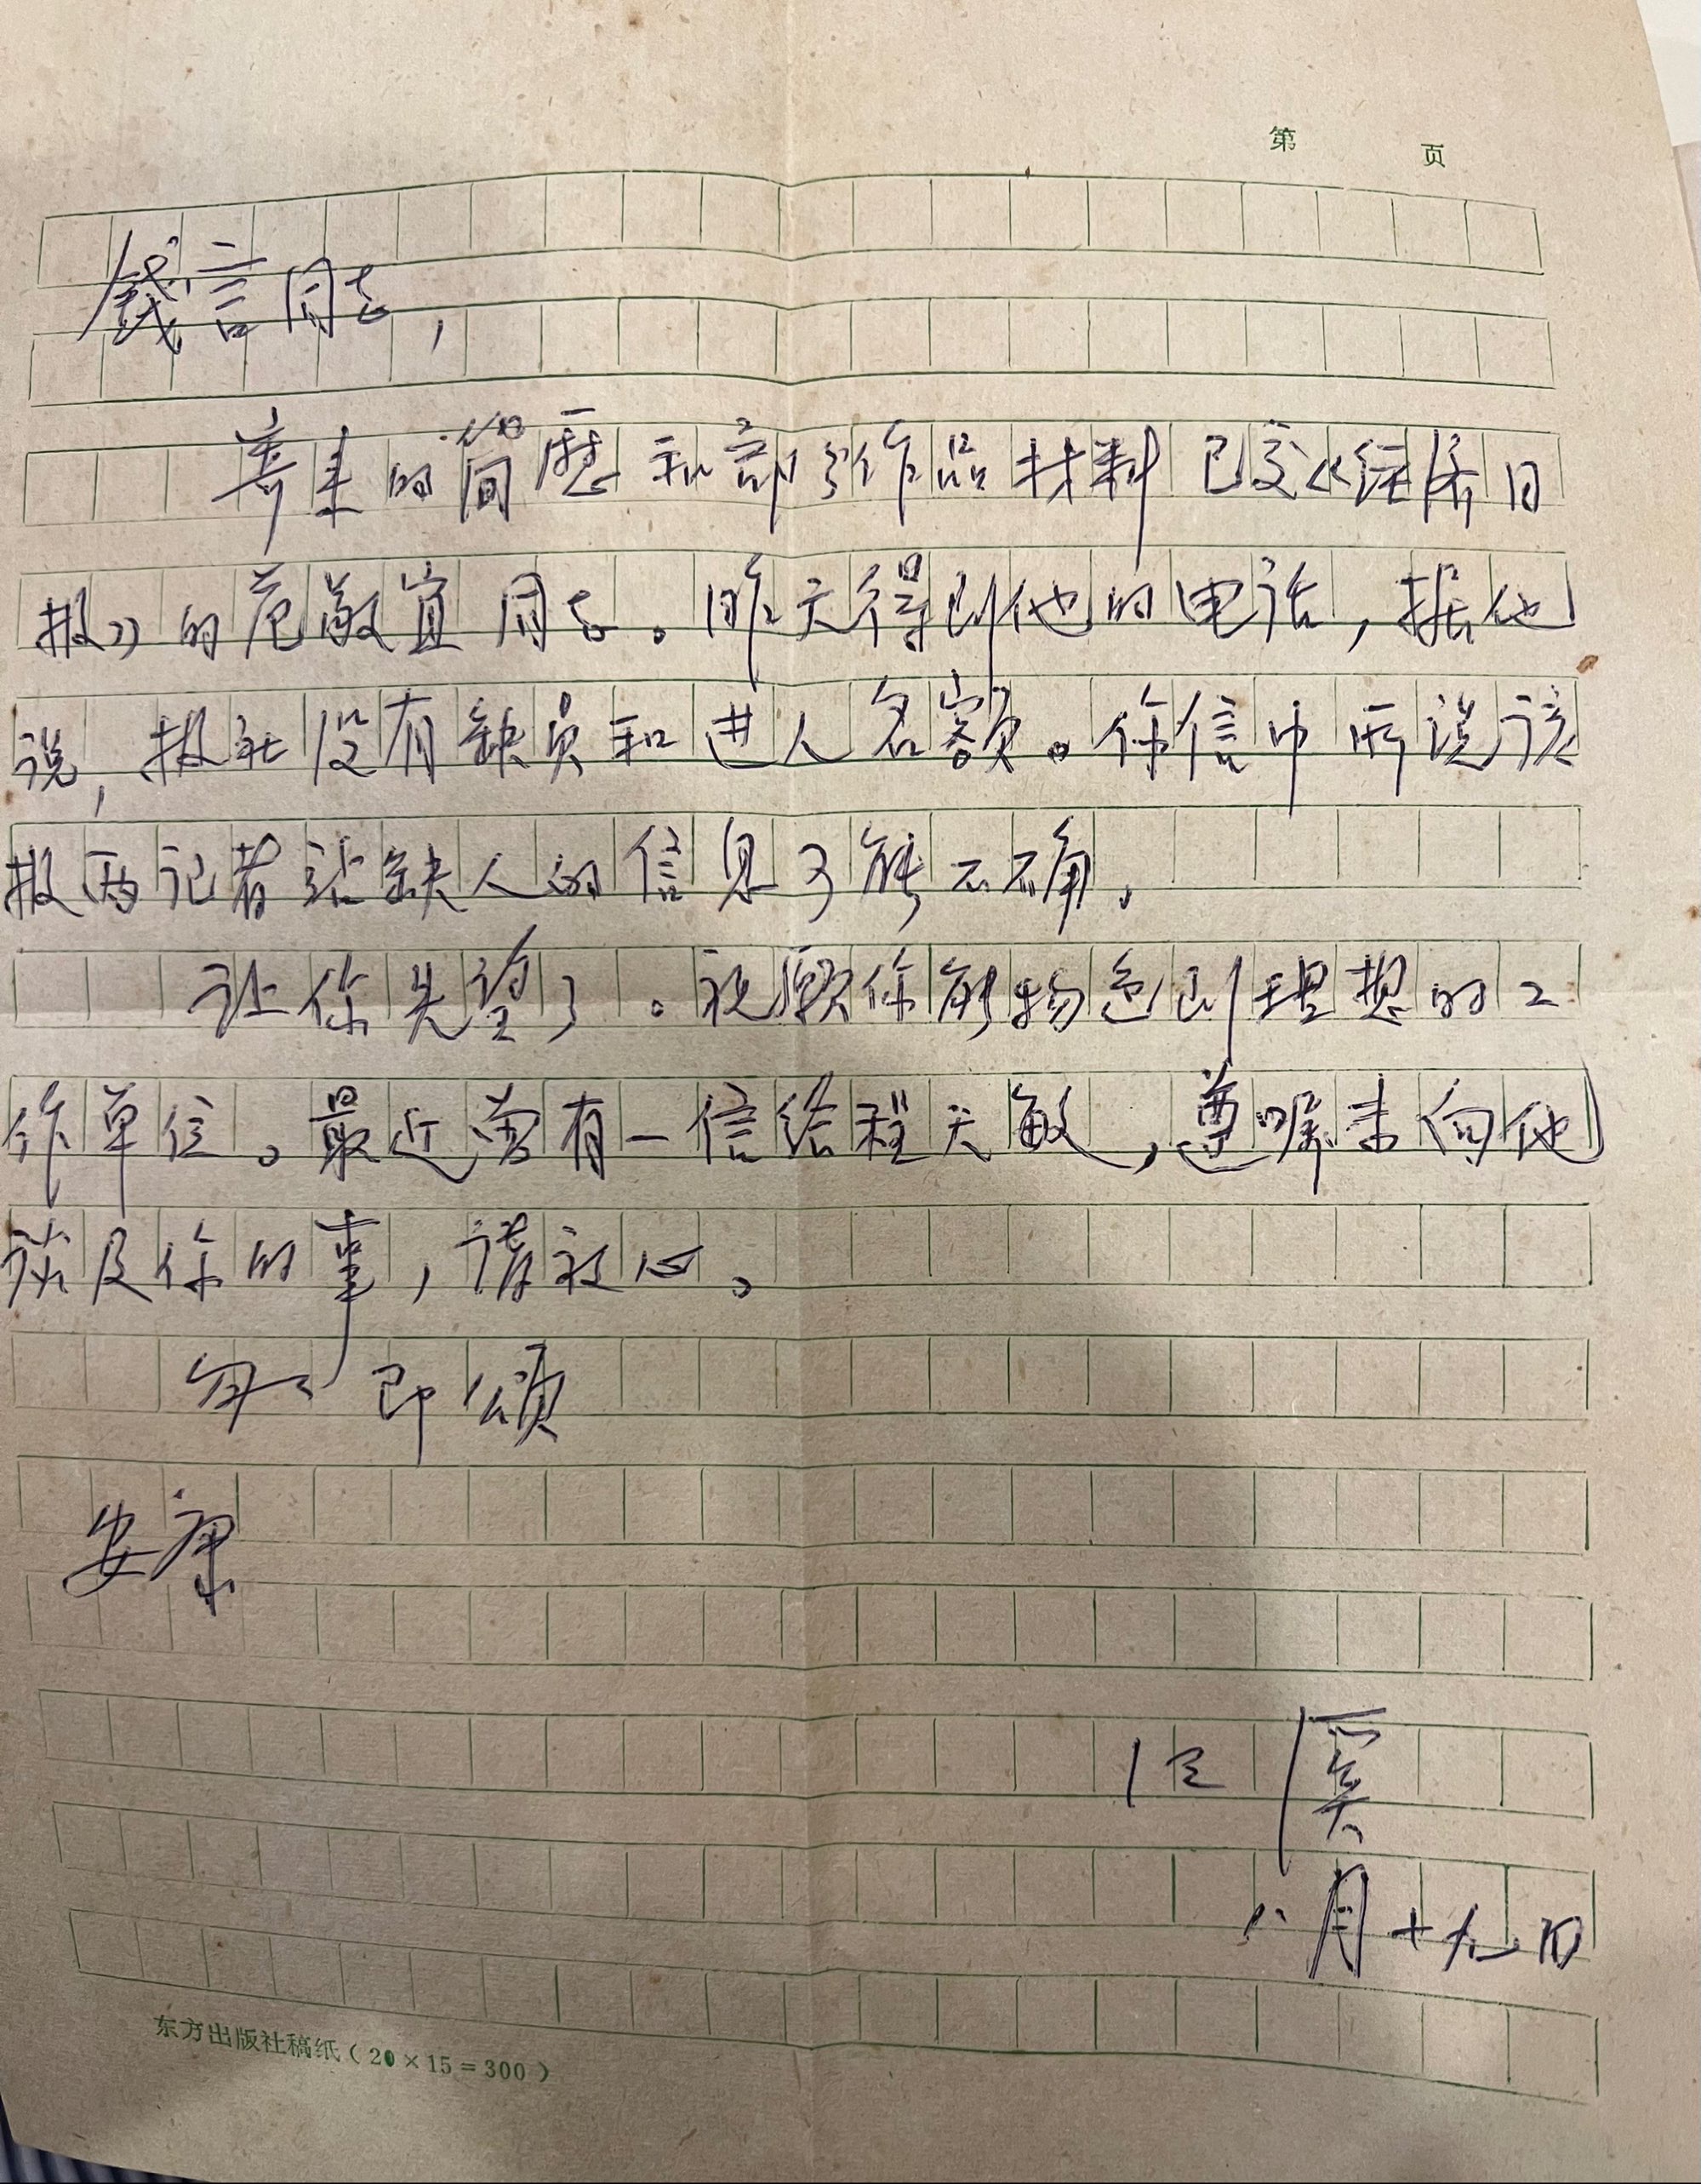 第 页
钱言同志，
寄来的简歷和部分作品材料已交《经济日
报》的范敬宜同志。昨天得到他的电话，据他
说，报社没有缺员和进人名额。你信中所说该
报两记者站缺人的信息可能不确。
让你失望了。祝愿你能物色到理想的工
作单位。最近曾有一信给程天敏，遵嘱未向他
谈及你的事，请放心。
匆匆 即颂
安康
八月十九日
东方出版社稿纸（20×15＝300）